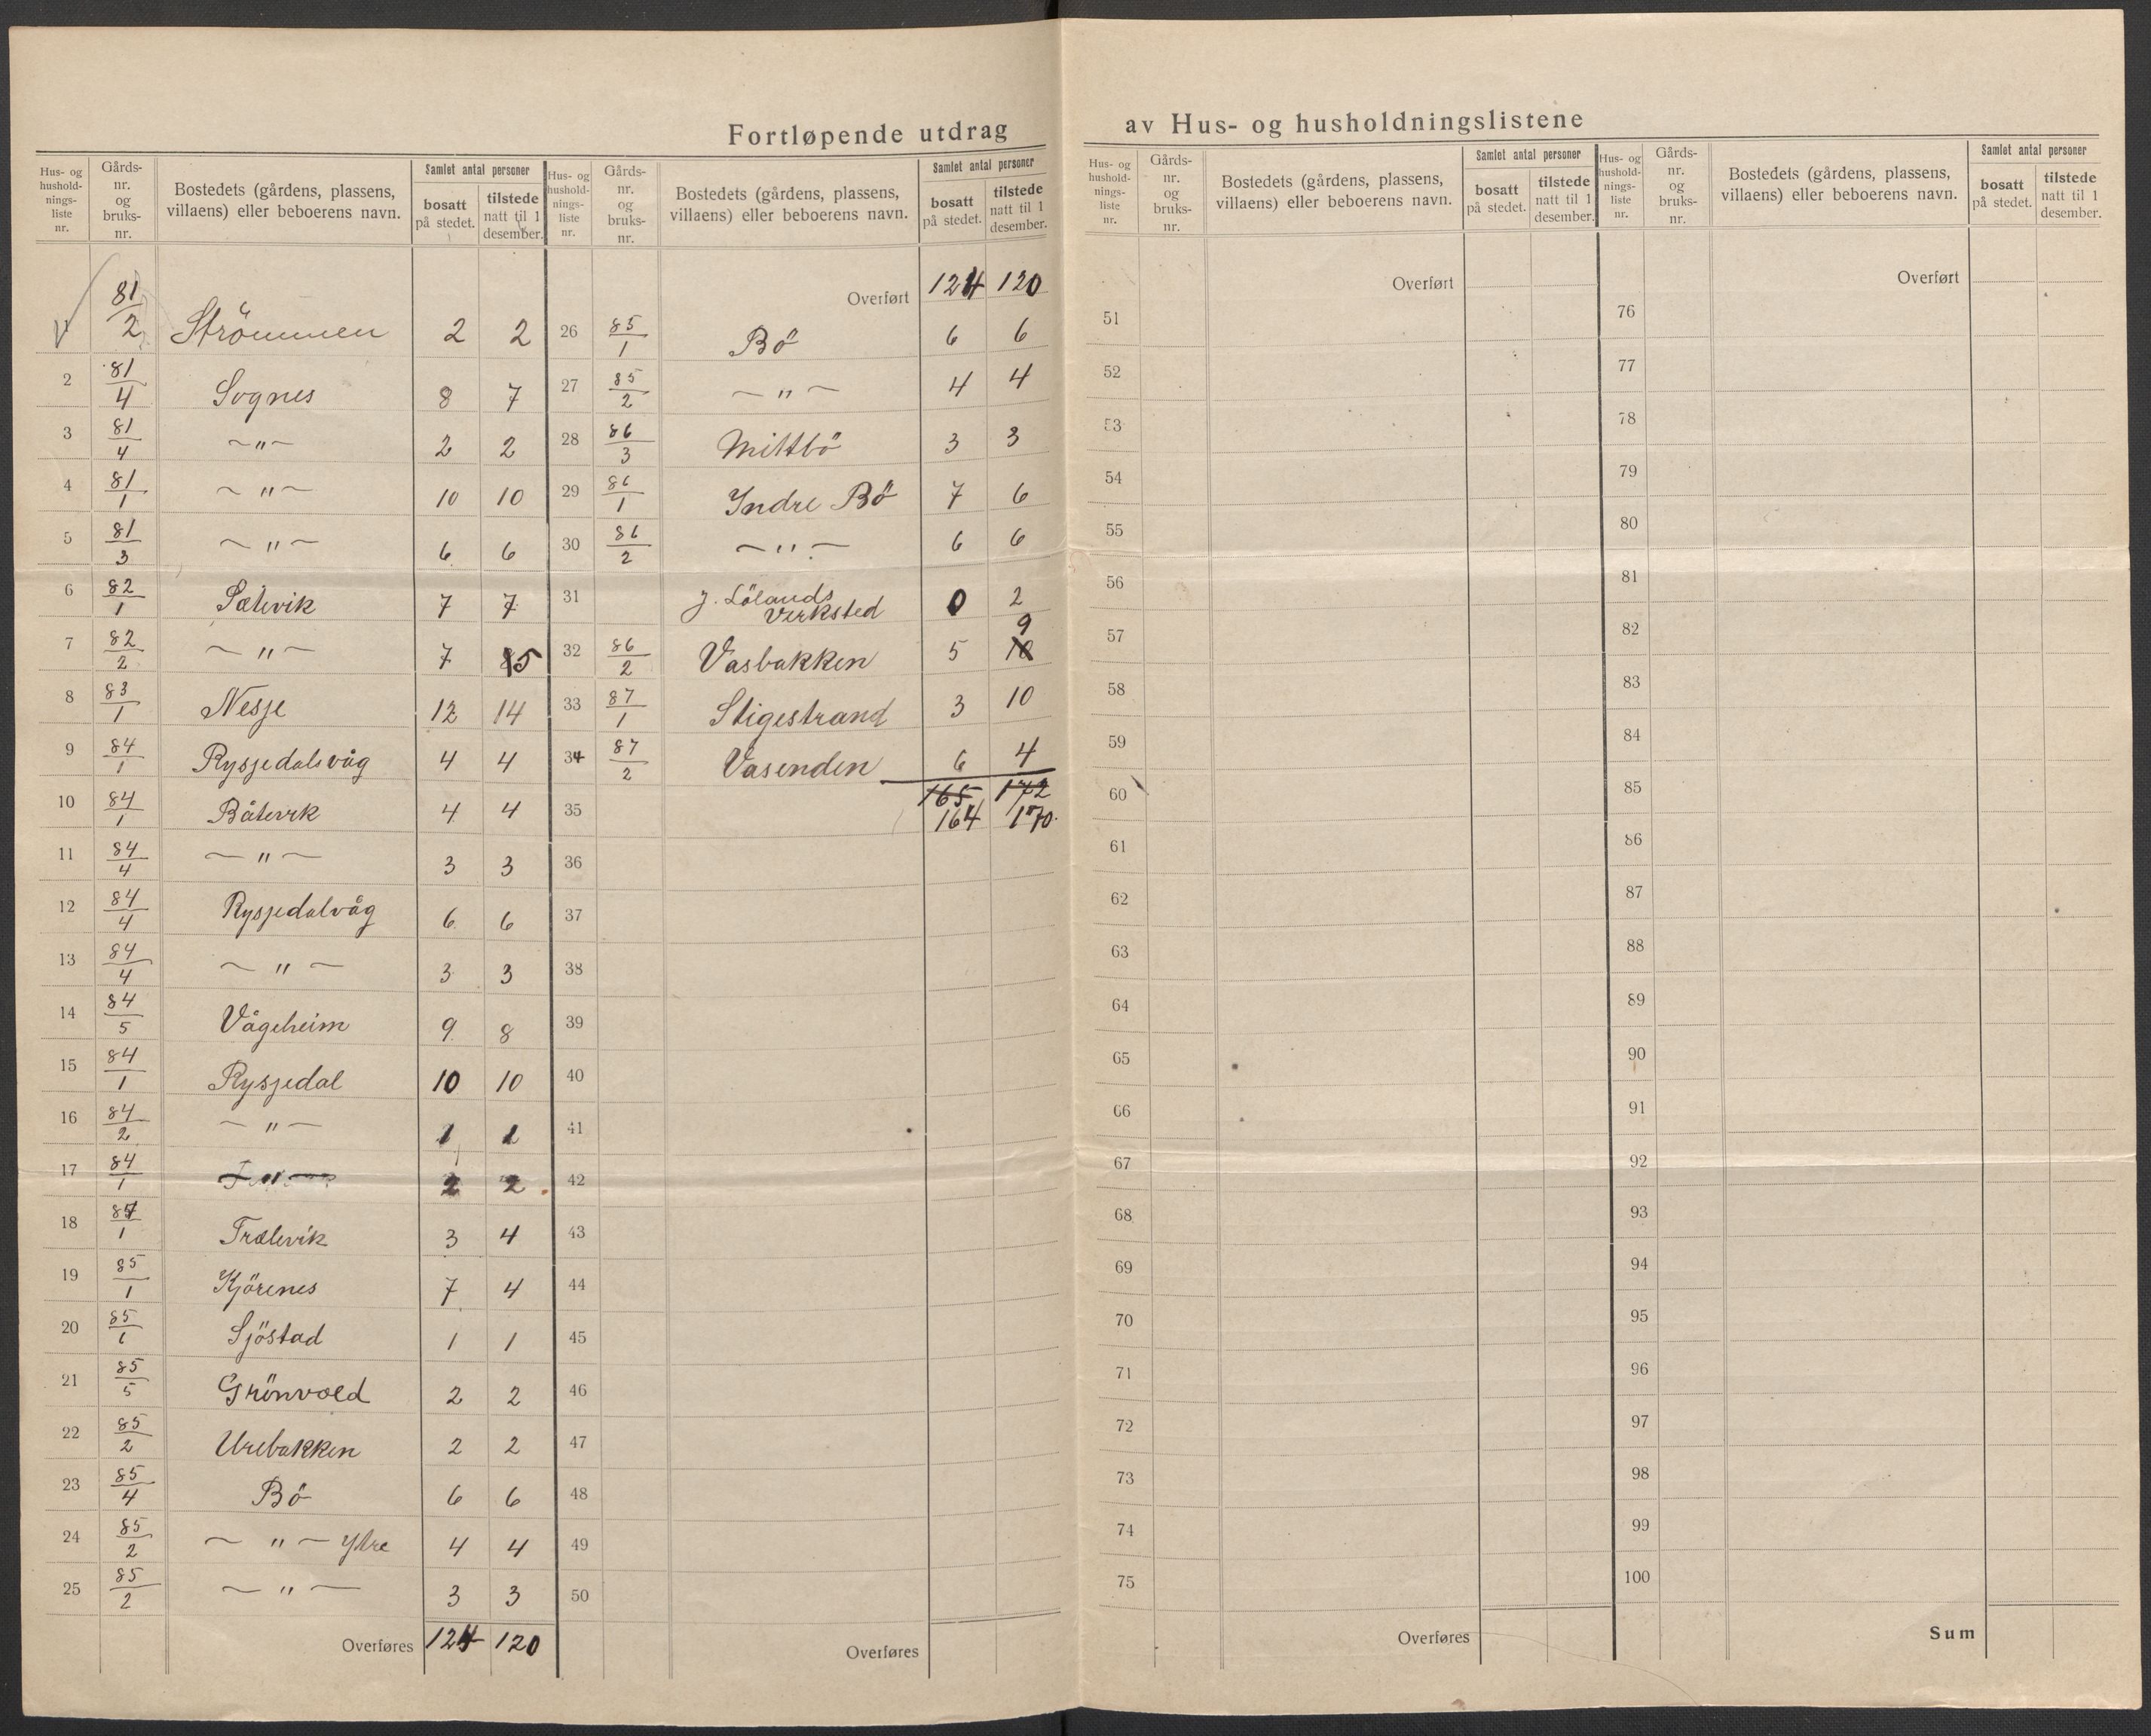 Fortløpende utdrag av Hus- og husholdningslistene
Hus- og husholdnings-liste nr. | Gårds-nr. og bruks-nr. | Bostedets (gårdens, plassens, villaens) eller beboerens navn. | Samlet antal personer bosatt på stedet. | tilstede natt til 1 desember.
81/2 Strömmen 2 2
2 81/4 Sognes 8 7
3 81/4 — " — 2 2
4 81/1 — " — 10 10
5 81/3 — " — 6 6
6 82/1 Sætevik 7 7
7 82/2 — " — 7 5
8 83/1 Nesje 12 14
9 84/1 Rysjedalsvåg 4 4
10 84/1 Båtevik 4 4
11 84/4 — " — 3 3
12 84/4 Rysjedalvåg 6 6
13 84/4 — " — 3 3
14 84/5 Vågeheim 9 8
15 84/1 Rysjedal 10 10
16 84/2 — " — 1 1
17 84/1 — " — 2 2
18 84/1 Trælevik 3 4
19 85/1 Kjörenes 7 4
20 85/6 Sjöstad 1 1
21 85/5 Grönvold 2 2
22 85/2 Urebakken 2 2
23 85/4 Bö 6 6
24 85/2 — " — Ytre 4 4
25 85/2 — " — 3 3
Overføres 124 120
Hus- og husholdnings-liste nr. | Gårds-nr. og bruks-nr. | Bostedets (gårdens, plassens, villaens) eller beboerens navn. | Samlet antal personer bosatt på stedet. | tilstede natt til 1 desember.
Overført 124 120
26 85/1 Bö 6 6
27 85/2 — " — 4 4
28 86/3 Mittbö 3 3
29 86/1 Yndre Bö 7 6
30 86/2 — " — 6 6
31 J. Lölands Verksted 0 2
32 86/2 Vasbakken 5 10 9
33 87/1 Stigestrand 3 10
34 87/2 Vasenden 6 4
165 172
35 164 170.
36
37
38
39
40
41
42
43
44
45
46
47
48
49
50
Overføres
Hus- og husholdnings-liste nr. | Gårds-nr. og bruks-nr. | Bostedets (gårdens, plassens, villaens) eller beboerens navn. | Samlet antal personer bosatt på stedet. | tilstede natt til 1 desember.
Overført
51
52
53
54
55
56
57
58
59
60
61
62
63
64
65
66
67
68
69
70
71
72
73
74
75
Overføres
Hus- og husholdnings-liste nr. | Gårds-nr. og bruks-nr. | Bostedets (gårdens, plassens, villaens) eller beboerens navn. | Samlet antal personer bosatt på stedet. | tilstede natt til 1 desember.
Overført
76
77
78
79
80
81
82
83
84
85
86
87
88
89
90
91
92
93
94
95
96
97
98
99
100
Sum